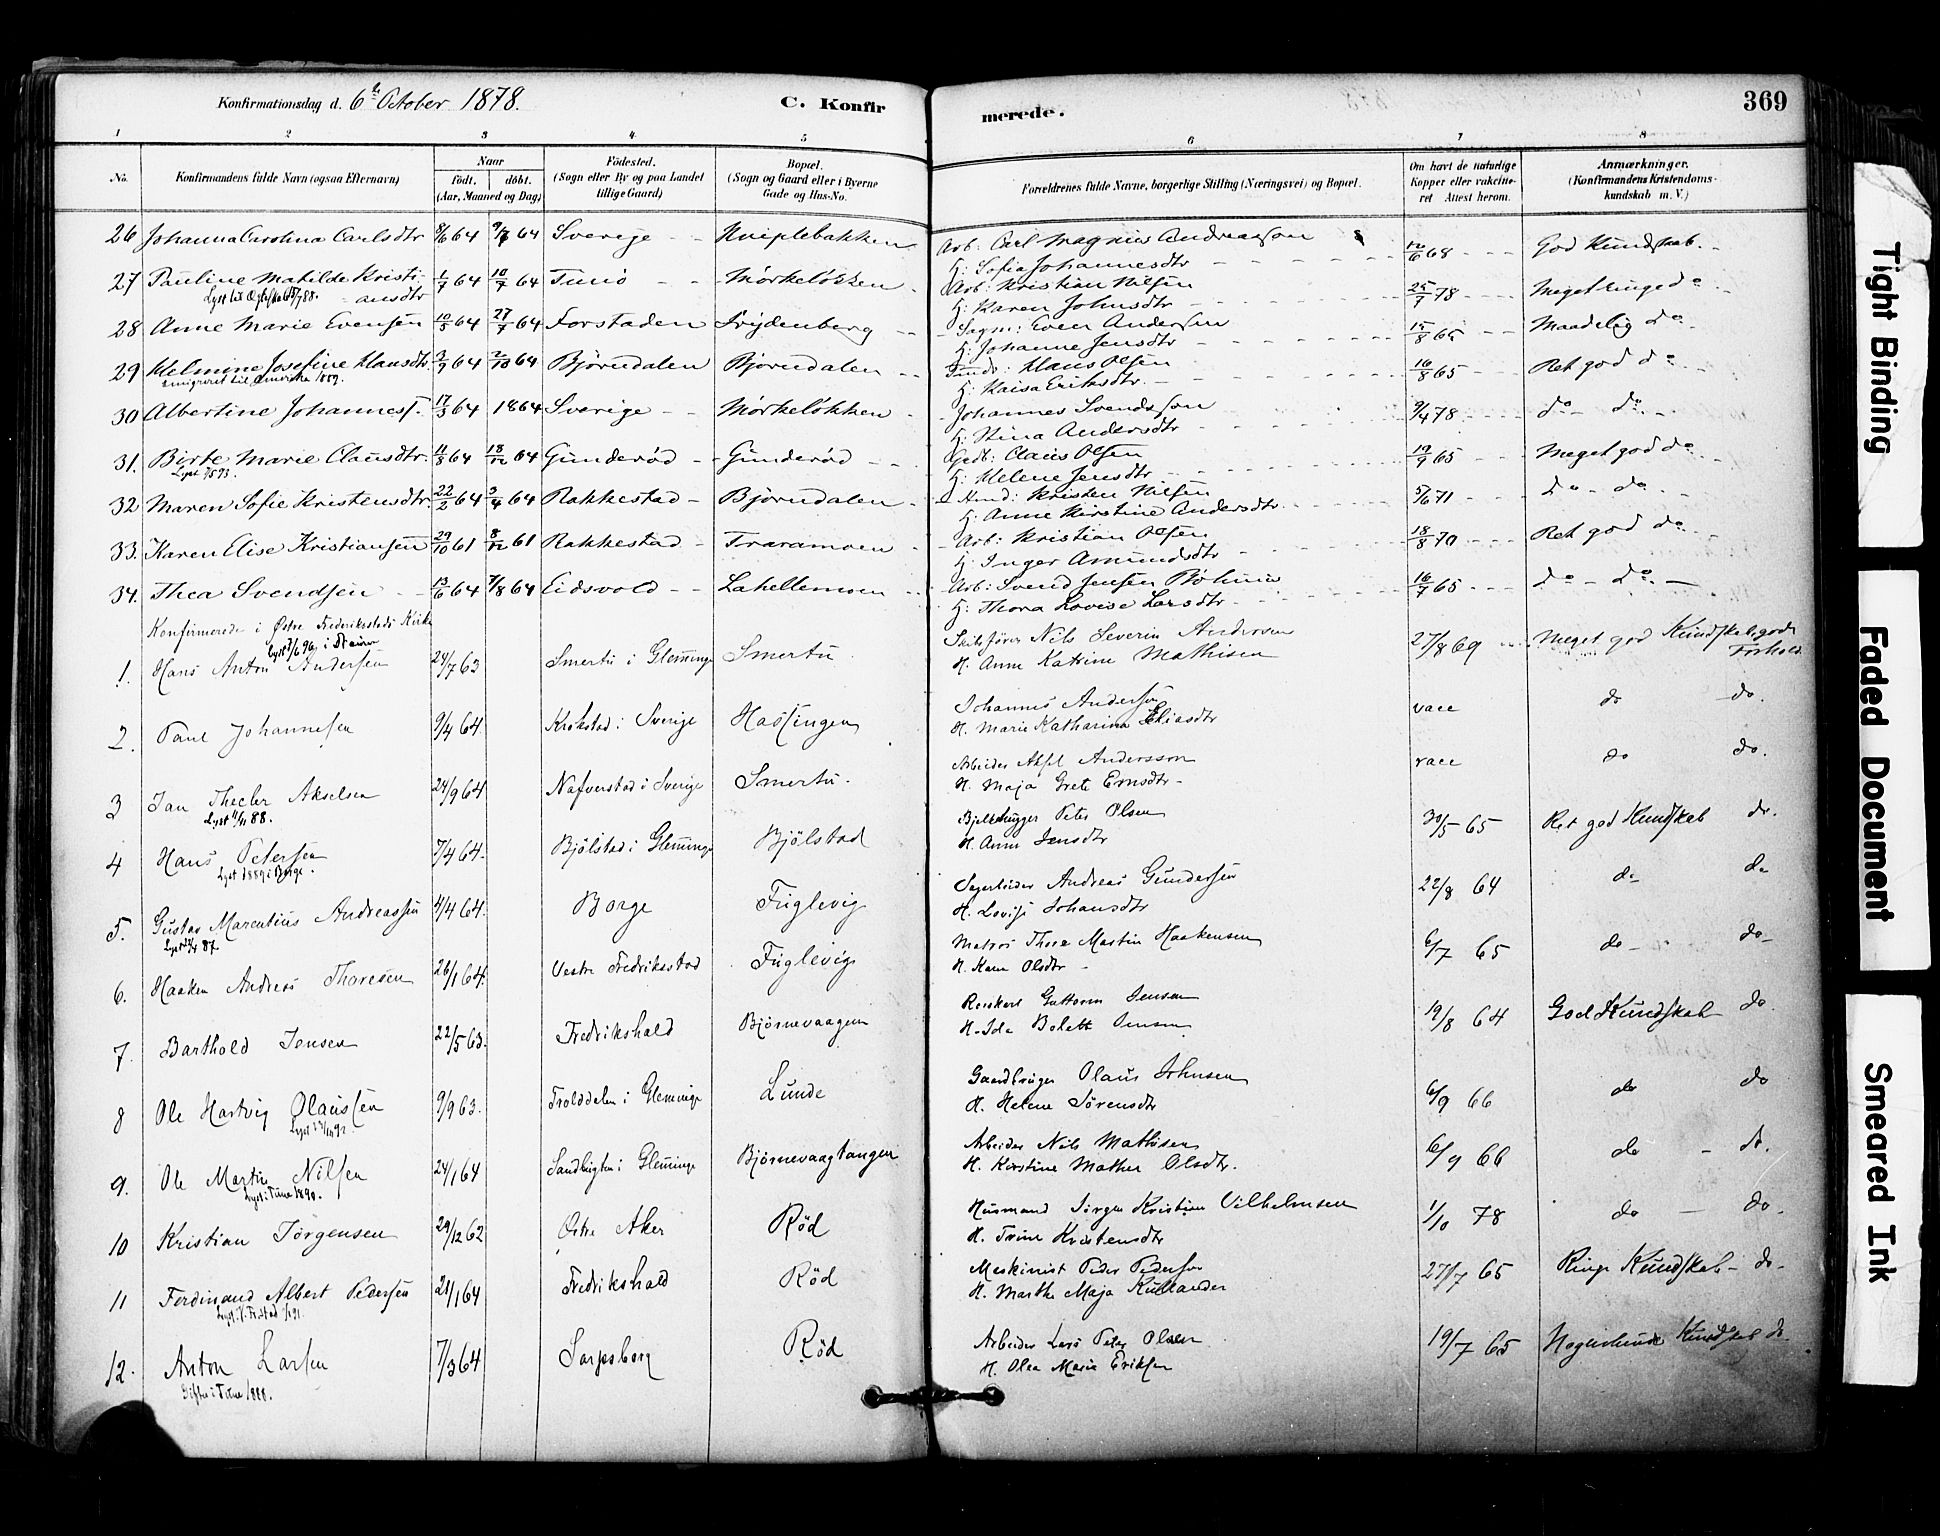 Konfirmationsdag d. 6te October 1878.
C. Konfirmerede.
369
1 2 3 4 5 6 7 8
No. Konfirmandens fulde Navn (ogsaa Efternavn) Naar födt. döbt. (Aar, Maaned og Dag) Födested. (Sogn eller By og paa Landet tillige Gaard) Bopæl. (Sogn og Gaard eller i Byerne Gade og Hus-No. Forældrenes fulde Navne, borgerlige Stilling (Næringsvei) og Bopæl. Om havt de naturlige Kopper eller vakcineret Attest herom. Anmærkninger. (Konfirmandens Kristendomskundskab m. V.)
26 Johanna Carolina Carlsdtr 8/6 64 9/7 64 Sverige Kniplebakken Arb: Carl Magnus Andreasson 12/6 68 God Kundskab.
H: Sofia Johannesdtr
27 Pauline Matilde Kristiansdtr 1/7 64 10/7 64 Tunö Mörkelökken Arb: Kristian Nilsen 25/7 78 Meget ringe do
H: Karen Johnsdtr
28 Anne Marie Evensen 10/5 64 27/7 64 Forstaden Frydenberg Sagm: Even Andersen 15/8 65 Maadelig do
H: Johanne Jensdtr
29 Helmine Josefine Klausdtr 3/9 64 2/10 64 Björndalen Björndalen Klaus Olsen 16/8 65 Ret god do
emigreret til Amerika 1889.
H: Kaisa Eriksdtr
30 Albertine Johannesf. 17/3 64 1864 Sverige Mörkelökken Johannes Svendsson 9/4 78 do do
H: Stina Andersdtr
31. Birte Marie Clausdtr. 11/8 64 18/12 64 Gunderöd Gunderöd Gedb: Claus Olsen 19/9 65 Meget god do
H: Helene Jensdtr
32 Maren Sofie Kristensdtr. 22/2 64 3/4 64 Rakkestad Björndalen Kristen Nilsen 5/6 71 do do
H: Anne Kirstine Andersdtr
33. Karen Elise Kristiansen 29/10 61 8/12 61 Rakkestad Traramoen Arb: Kristian Olsen 18/8 70 Ret god do
H: Inger Amundsdtr
34. Thea Svendsen 13/6 64 7/8 64 Eidsvold Lahellemoen Arb: Svend Jensen Böhmer 16/7 65 do do
H: Thora Lovise Larsdtr
Konfirmerede i Östre Frederiksstads Kirke
1. Hans Anton Andersen 24/7 63 Smertu i Glemminge Smertu Skibsförer Nils Severin Andersen 27/8 69 Meget god Kundskab, godt Forhold
H. Anne Katrine Mathisen
2. Paul Johannesen 9/4 64. Krokstad i Sverige Hassingen Johannes Anderson vacc do do.
H. Marie Katharina Eliasdtr
3 Jan Thecler Akselsen 24/9 64 Nafverstad i Sverige Smertu. Arbeider Aksel Andersson vacc do do.
Lyst 11/11 88.
H. Maja Grete Ernsdtr
4 Hans Petersen 7/4 64. Bjölstad i Glemminge Bjölstad Bjelkehugger Peter Olsen 30/5 65 Ret god Kundskab do.
Lyst 1889 i Borge.
H. Anne Jensdtr
5. Gustav Marentius Andreassen 4/4 64. Borge Fuglevig Sagarbeider Andreas Gundersen 22/8 64 do do
H. Lovise Johansdtr
6. Haaken Andreas Thoresen 26/1 64. Vestre Fredriksstad Fuglevig Matros Thore Martin Haakensen 6/7 65 do do
H. Karen Olsdtr
7. Barthold Jensen 22/5 63. Fredrikshald Björnevaagen Guttorm Jensen 19/8 64 God Kundskab do.
H. Ida Bolett Jensen
8 Ole Hartvig Olaussen 9/9 63. Trolddalen i Glemminge Lunde Gaardbruger Olaus Johnsen 6/9 66 do do
H. Helene Sörensdtr
9. Ole Martin Nilsen 24/1 64 Sandbugten i Glemminge Björnevaagtangen Arbeider Nils Mathisen 6/9 66 do do.
Lyst i Tune 1890.
H. Kirstine Mathea Olsdtr.
10 Kristian Jörgensen 29/12 62 Östre Aker Röd Husmand Jörgen Kristian Vilhelmsen 1/10 78 do do.
H. Trine Kristensdtr
11 Ferdinand Albert Pedersen 21/1 64 Fredrikshald Röd Maskinist Peder Pedersen 27/7 65 Ringe Kundskab do
H. Marthe Maja Kullander
12. Anton Larsen 7/3 64 Sarpsborg Röd Arbeider Lars Peter Olsen 19/7 65 Nogenlunde Kundskab do
Gift i Tune 1888.
H. Olea Marie Eriksen
Tight Binding
Faded Document
Smeared Ink